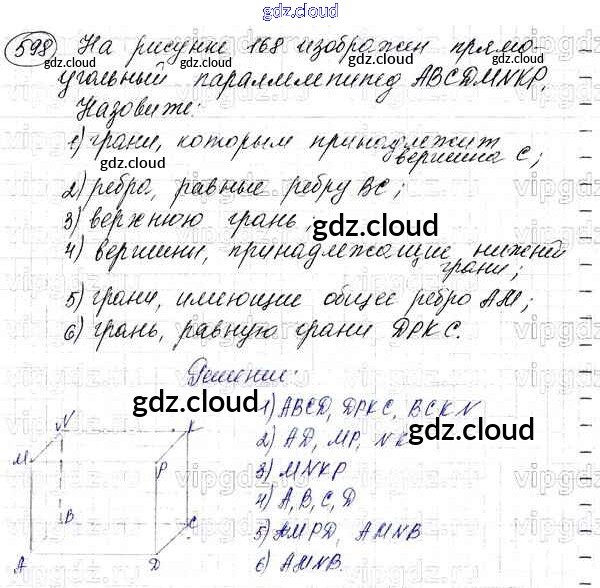 gdz.cloud
598) На рисунке 168 изображен прямо-
угольный параллелепипед ABCDMNKP.
Назовите:
1) грани, которым принадлежит
вершина C;
2) ребра, равные ребру BC;
3) верхнюю грань;
4) вершины, принадлежащие нижней
грани;
5) грани, имеющие общее ребро AM;
6) грань, равную грани DPKC.
Решение:
1) ABCD, DPKC, BCKN
2) AD, MP, NK
3) MNKP
4) A, B, C, D
5) AMPD, AMNB
6) AMNB.
N K
M P
B C
A D
gdz.cloud
gdz.cloud
gdz.cloud
gdz.cloud
gdz.cloud
gdz.cloud
gdz.cloud
gdz.cloud
gdz.cloud